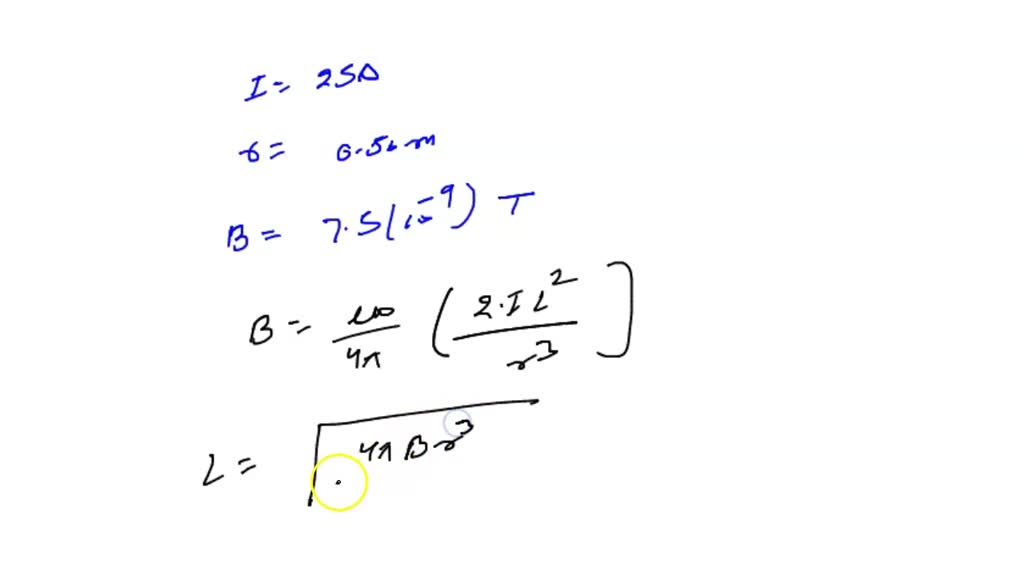 I = 25A
r = 0.50 m
B = 7.5(10^-9) T
B = μ0/4π (2·I L^2/r^3]
L = √4π B r^3